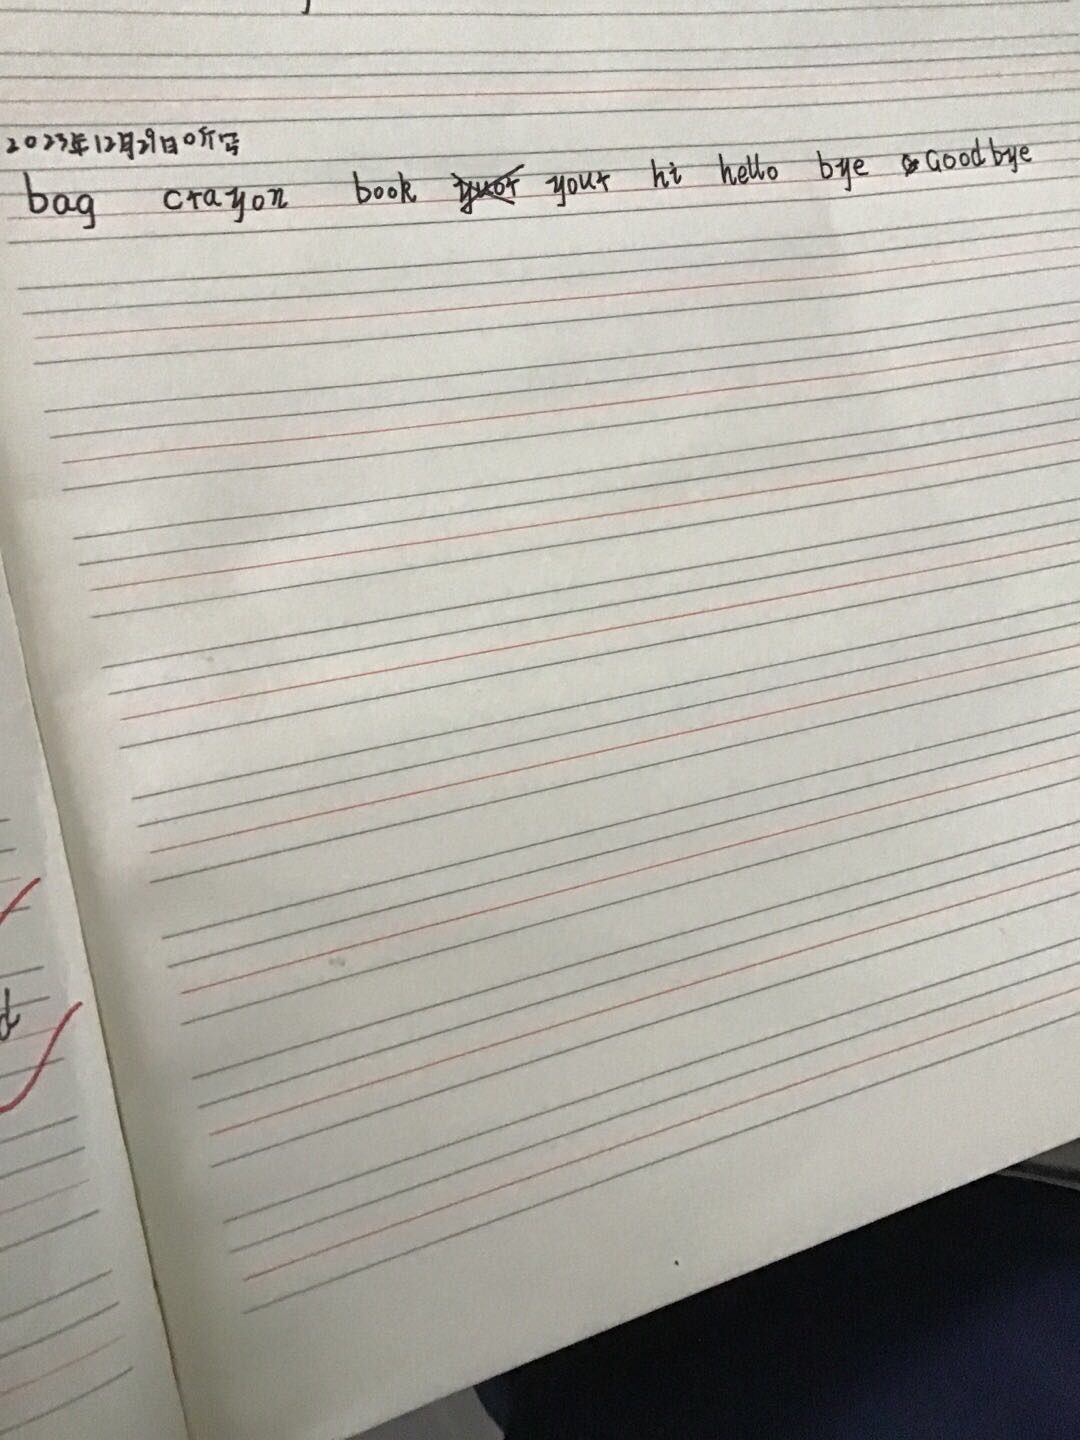 2023年12月29日听写
bag crayon book your hi hello bye Goodbye
d